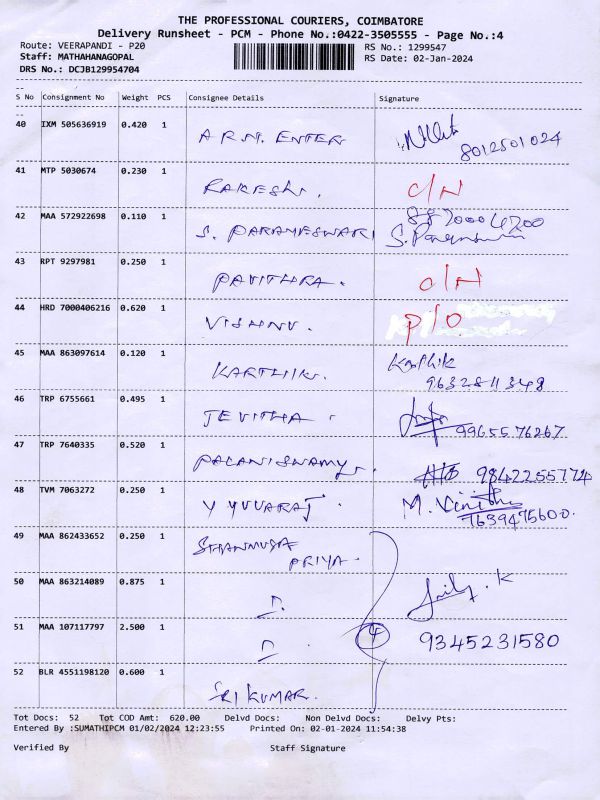 THE PROFESSIONAL COURIERS, COIMBATORE
Delivery Runsheet - PCM - Phone No.:0422-3505555 - Page No.:4
Route: VEERAPANDI - P20 RS No.: 1299547
Staff: MATHAHANAGOPAL RS Date: 02-Jan-2024
DRS No.: DCJB129954704
S No Consignment No Weight PCS Consignee Details Signature
40 IXM 505636919 0.420 1 A R M. ENTER 8012501024
41 MTP 5030674 0.230 1 RAKESH. C/N
42 MAA 572922698 0.110 1 S. PARAMESWARI
43 RPT 9297981 0.250 1 PAVITHRA.
44 HRD 7000406216 0.620 1 VISHNU. P/O
45 MAA 863097614 0.120 1 KARTHIK. Karthik
9632811348
46 TRP 6755661 0.495 1 JEVITHA. 9965576267
47 TRP 7640335 0.520 1 PALANISWAMY. 9842255774
48 TVM 7063272 0.250 1 Y YUVARAJ. M. Vinitha
7639475600.
49 MAA 862433652 0.250 1 SHANMUGA
PRIYA.
50 MAA 863214089 0.875 1
51 MAA 107117797 2.500 1 4 9345231580
52 BLR 4551198120 0.600 1 SRI KUMAR.
Tot Docs: 52 Tot COD Amt: 620.00 Delvd Docs: Non Delvd Docs: Delvy Pts:
Entered By :SUMATHIPCM 01/02/2024 12:23:55 Printed On: 02-01-2024 11:54:38
Verified By Staff Signature